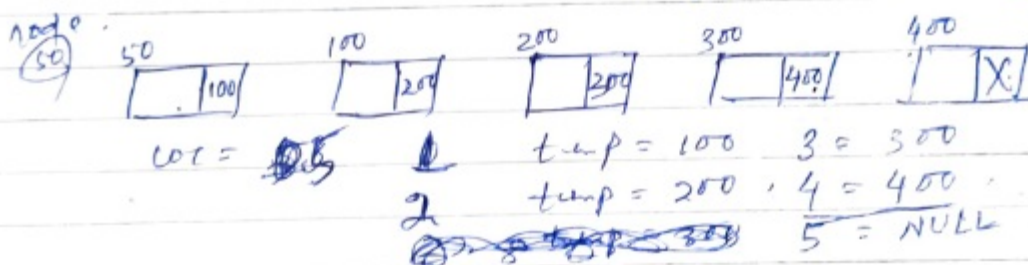 50 50 100 200 300 400
100 200 300 400 X
loc = 1 temp = 100 3 = 300
2 temp = 200 . 4 = 400 .
5 = NULL